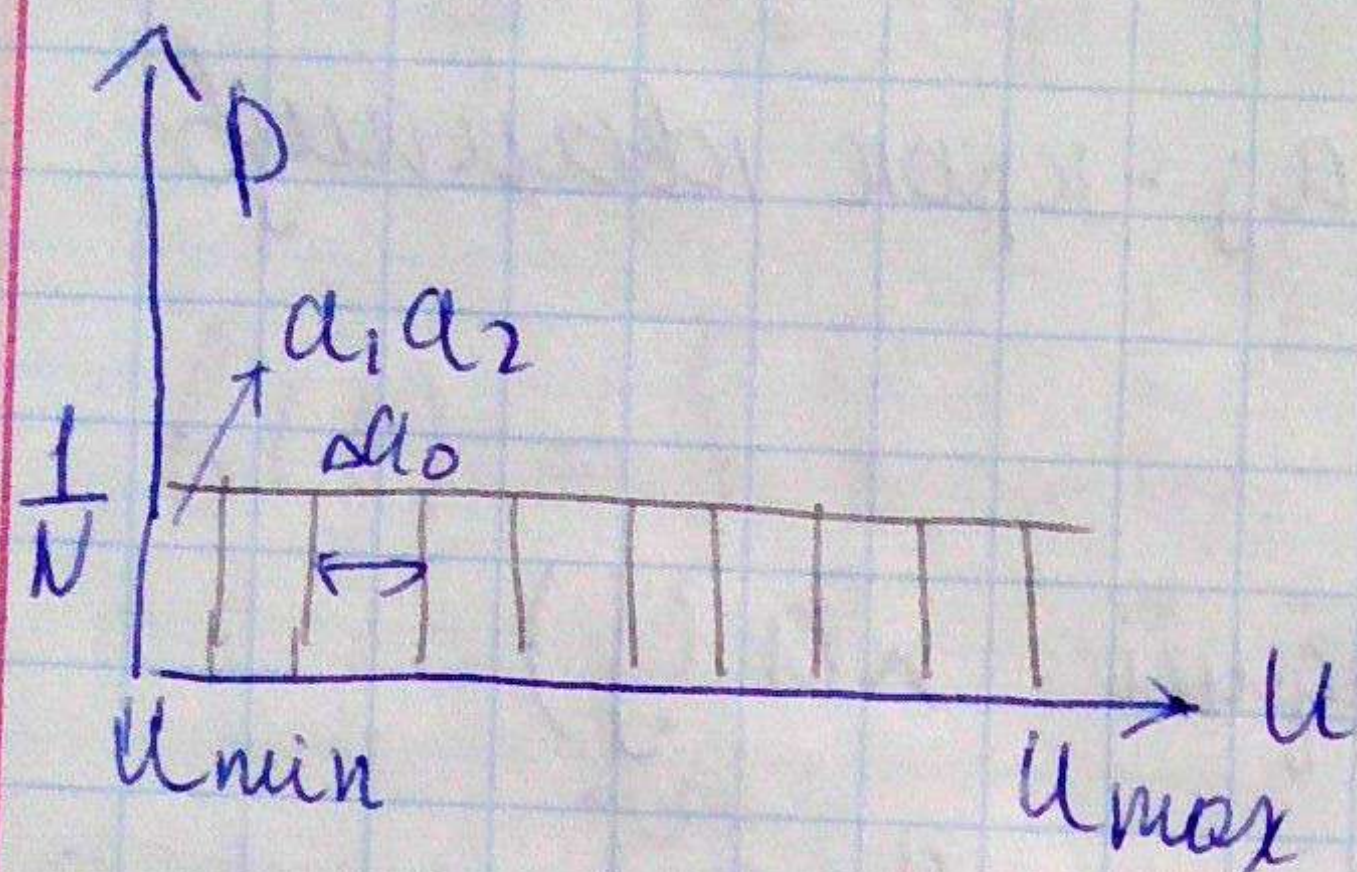 p
a₁ a₂
Δu₀
1
N
u
u min
u max